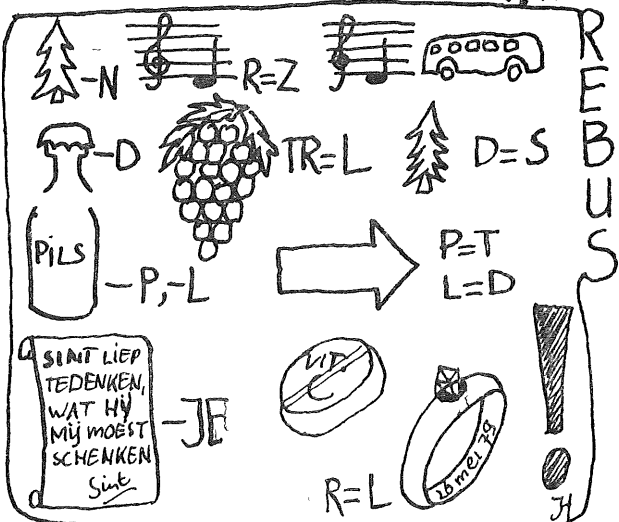 REBUS!
-N
R=Z
-D
TR=L
D=S
PILS
-P,-L
P=T
L=D
SINT LIEP
TEDENKEN,
WAT HIJ
MIJ MOEST
SCHENKEN
Sint
-JE
VIT.
C
R=L
26 mei 79
JL